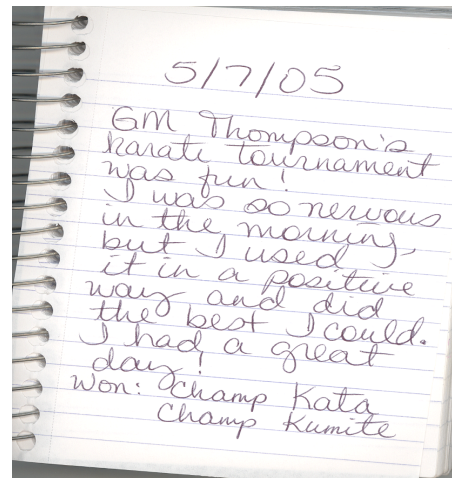 5/7/05
GM Thompson's
karate tournament
was fun!
I was so nervous
in the morning,
but I used
it in a positive
way and did
the best I could.
I had a great
day!
Won: Champ Kata
Champ Kumite